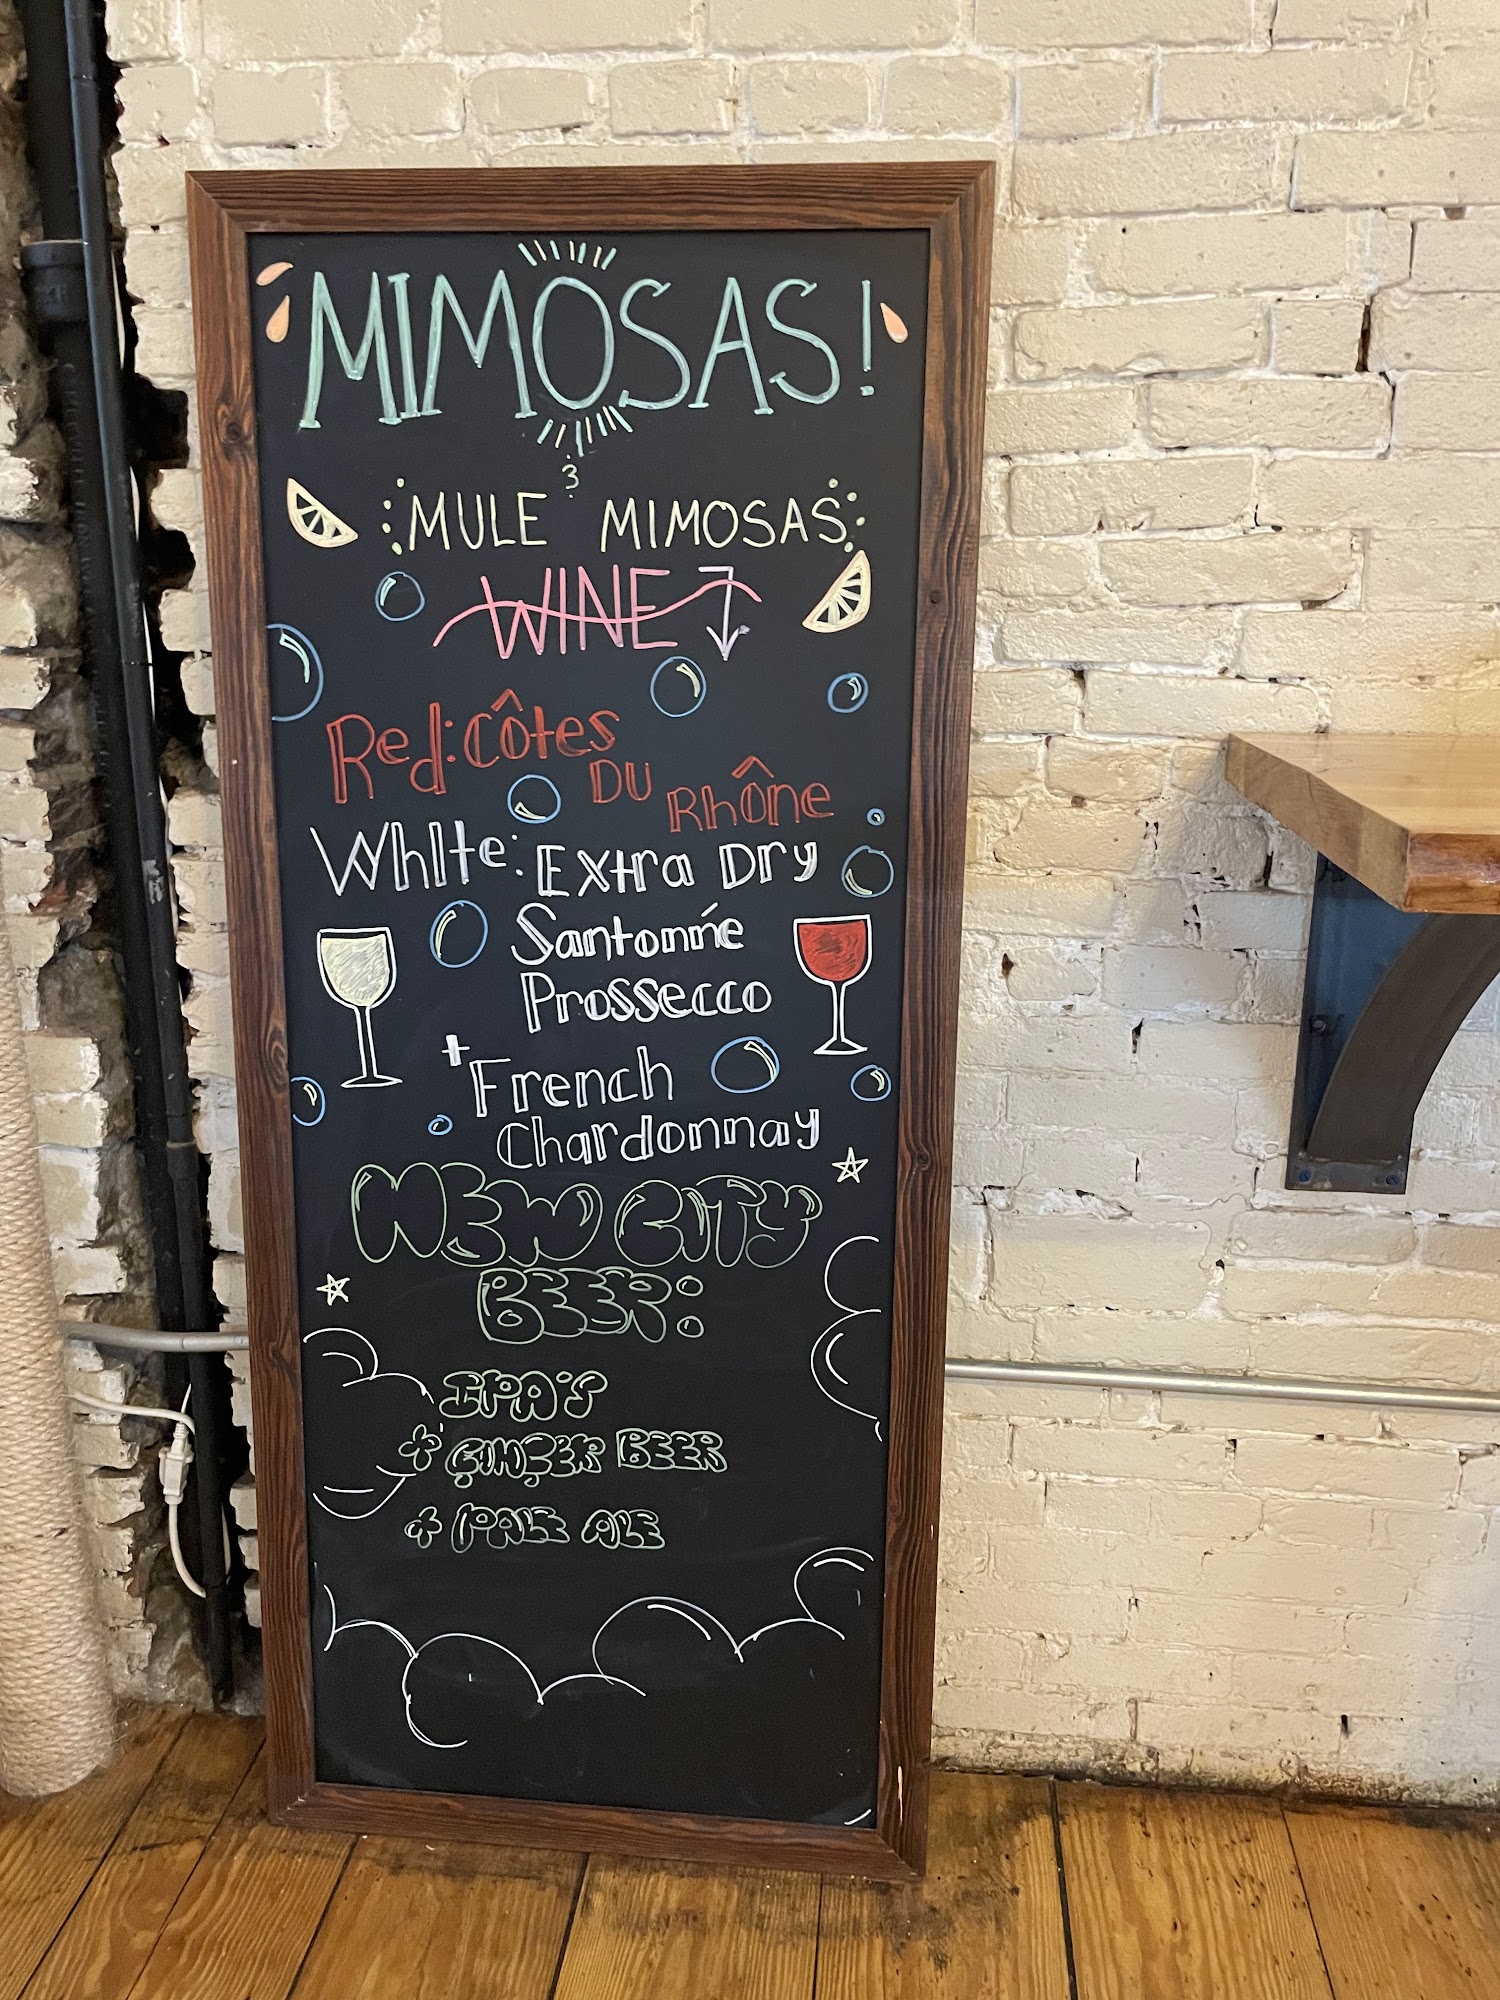 MIMOSAS!
&
MULE MIMOSAS
WINE
Red: Côtes
DU
Rhône
White: Extra Dry
Santonńe
Prossecco
+ French
Chardonnay
NEW CITY
BEER:
IPA'S
+ GINGER BEER
+ PALE ALE